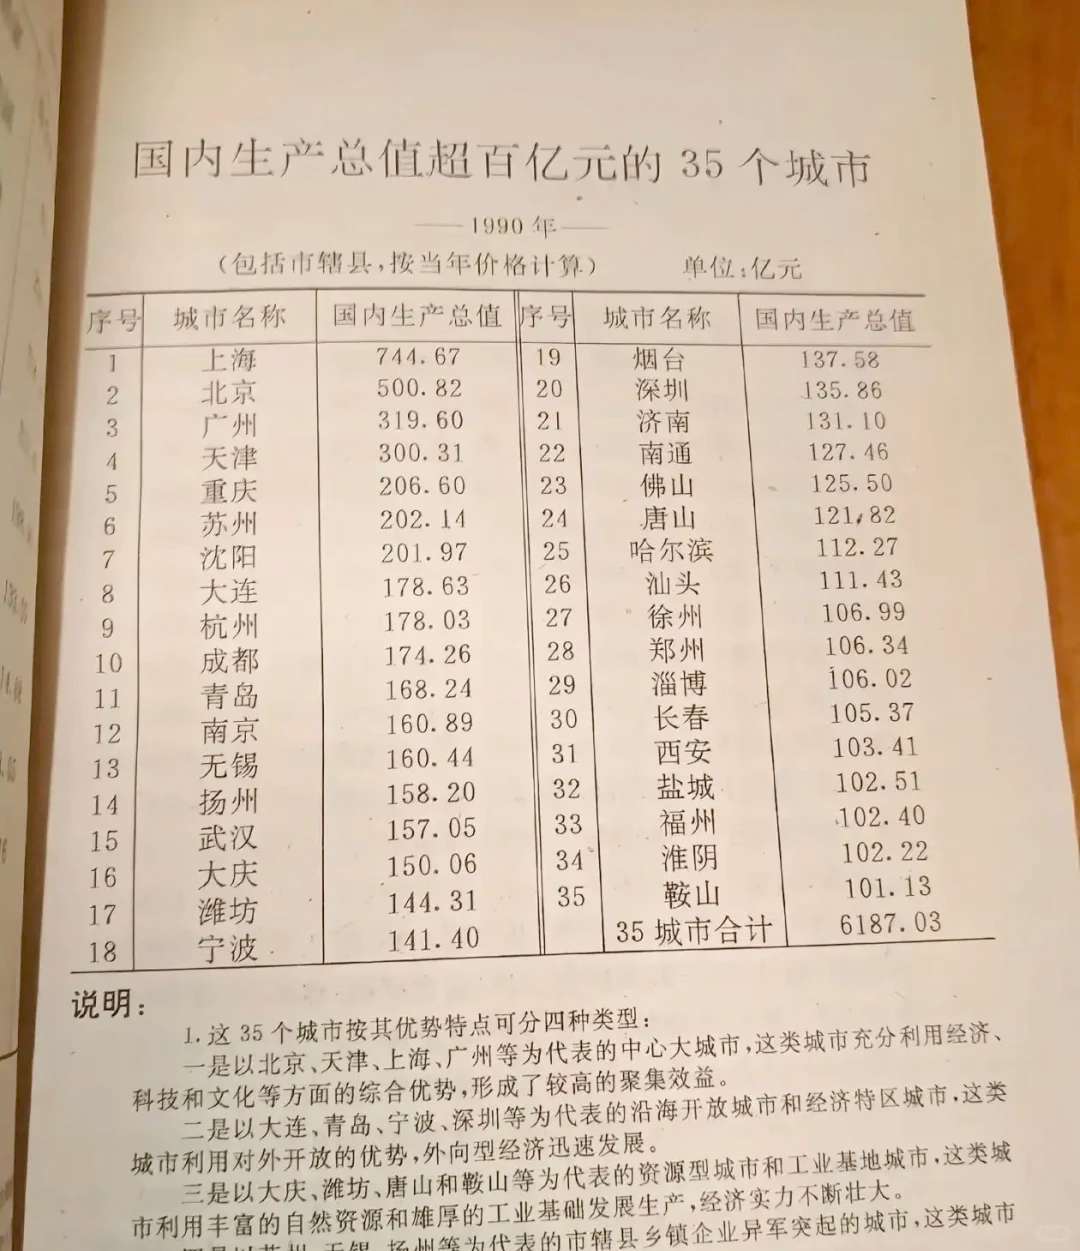 国内生产总值超百亿元的 35 个城市
——1990 年——
（包括市辖县，按当年价格计算） 单位：亿元
序号 城市名称 国内生产总值 序号 城市名称 国内生产总值
1 上海 744.67 19 烟台 137.58
2 北京 500.82 20 深圳 135.86
3 广州 319.60 21 济南 131.10
4 天津 300.31 22 南通 127.46
5 重庆 206.60 23 佛山 125.50
6 苏州 202.14 24 唐山 121.82
7 沈阳 201.97 25 哈尔滨 112.27
8 大连 178.63 26 汕头 111.43
9 杭州 178.03 27 徐州 106.99
10 成都 174.26 28 郑州 106.34
11 青岛 168.24 29 淄博 106.02
12 南京 160.89 30 长春 105.37
13 无锡 160.44 31 西安 103.41
14 扬州 158.20 32 盐城 102.51
15 武汉 157.05 33 福州 102.40
16 大庆 150.06 34 淮阴 102.22
17 潍坊 144.31 35 鞍山 101.13
18 宁波 141.40 35 城市合计 6187.03
说明：
1. 这 35 个城市按其优势特点可分四种类型：
一是以北京、天津、上海、广州等为代表的中心大城市，这类城市充分利用经济、
科技和文化等方面的综合优势，形成了较高的聚集效益。
二是以大连、青岛、宁波、深圳等为代表的沿海开放城市和经济特区城市，这类
城市利用对外开放的优势，外向型经济迅速发展。
三是以大庆、潍坊、唐山和鞍山等为代表的资源型城市和工业基地城市，这类城
市利用丰富的自然资源和雄厚的工业基础发展生产，经济实力不断壮大。
四是以苏州、无锡、扬州等为代表的市辖县乡镇企业异军突起的城市，这类城市